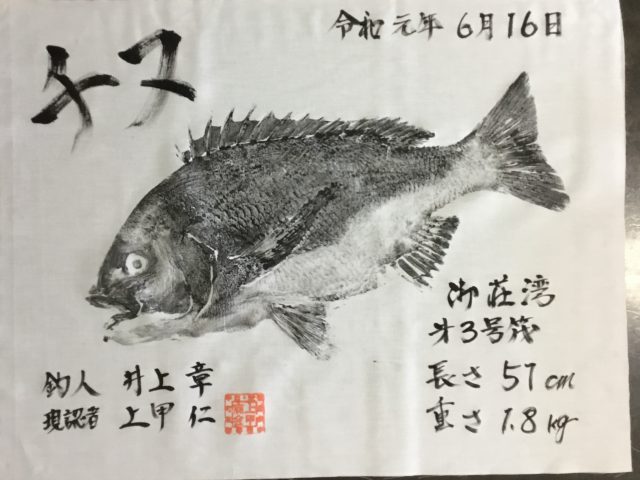 令和元年 6月16日
チヌ
御荘湾
才3号筏
長さ 57cm
重さ 1.8kg
釣人 井上 章
現認者 上甲 仁